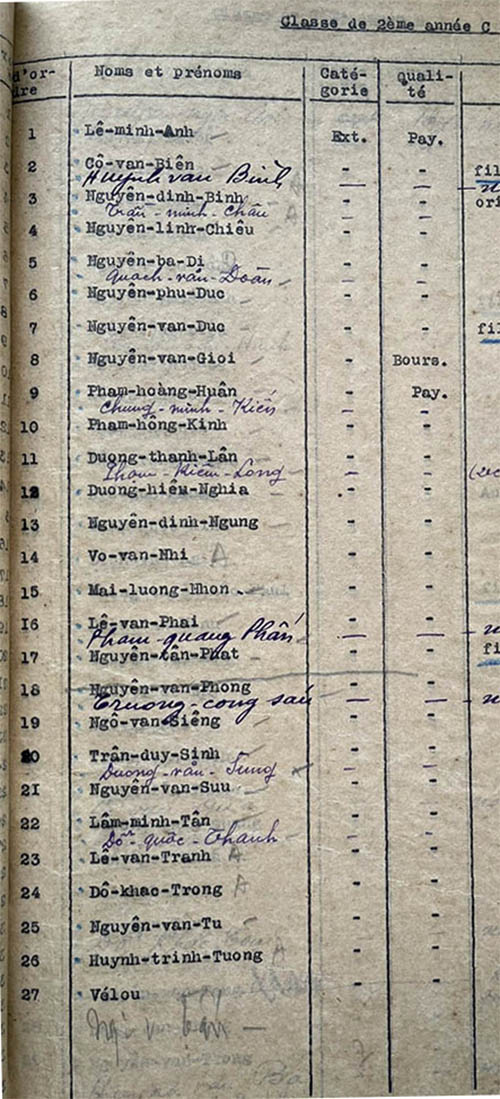 Classe de 2ème année C
d'or- Noms et prénoms Caté- Quali-
ire gorie té
1 Lê-minh-Anh Ext. Pay.
2 Cô-van-Biên - - fil
Huynh van Binh — —
3 Nguyên-dinh-Binh - - ori
Trần-minh-Châu — —
4 Nguyên-linh-Chiêu - -
5 Nguyên-ba-Di - -
Quach-văn-Doàn — —
6 Nguyên-phu-Duc - -
7 Nguyên-van-Duc - - fil
8 Nguyên-van-Gioi - Bours.
9 Pham-hoàng-Huân - Pay.
Chung-minh-Kiên —
10 Pham-hông-Kinh - -
11 Duong-thanh-Lân - -
Pham-Kiêm-Long — —
12 Duong-hiêu-Nghia - -
13 Nguyên-dinh-Ngung - -
14 Vo-van-Nhi A - -
15 Mai-luong-Nhon - -
16 Lê-van-Phai - -
Pham-quang-Phấn — —
17 Nguyên-tân-Phat - - fi
18 Nguyên-van-Phong - -
Truong-cong-sáu — —
19 Ngô-van-Siêng - -
20 Trân-duy-Sinh - -
Duong-văn-Tung — —
21 Nguyên-van-Suu - -
22 Lâm-minh-Tân - -
Dỗ-quốc-Thanh — —
23 Lê-van-Tranh A - -
24 Dô-khac-Trong A - -
25 Nguyên-van-Tu - -
26 Huynh-trinh-Tuong A - -
27 Vélou - -